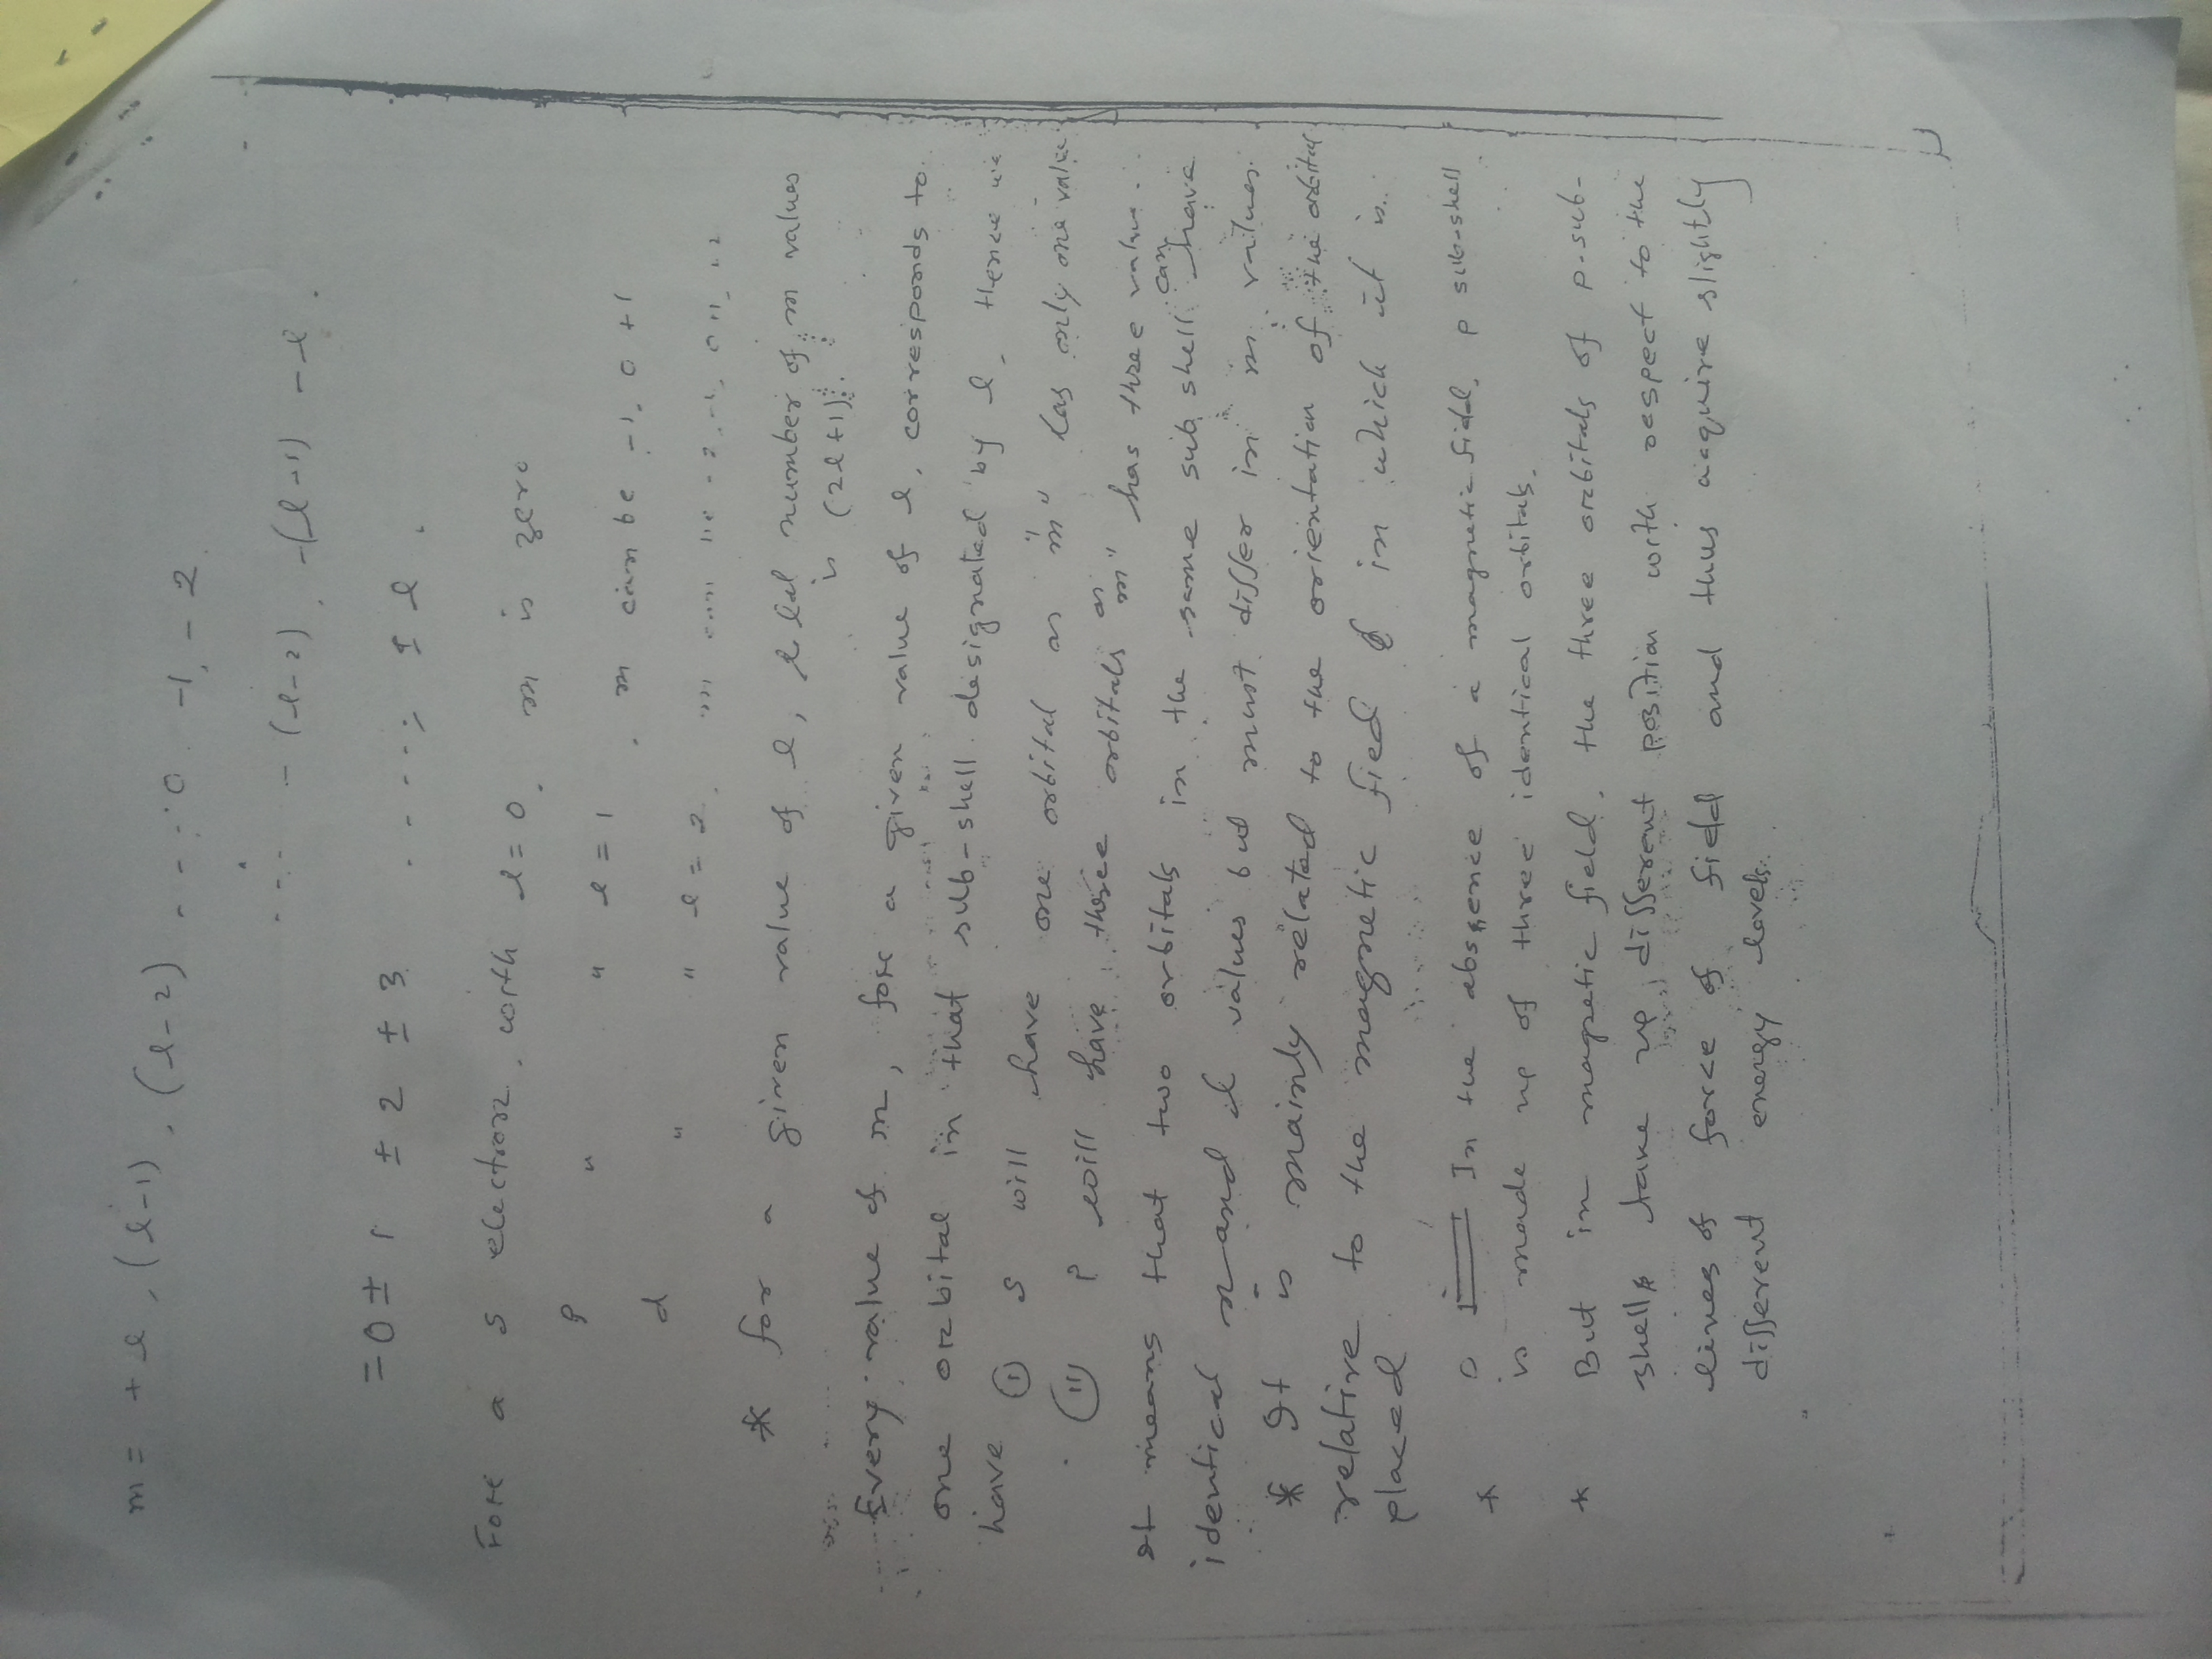 m = + l , (l-1) , (l-2) - - - 0 -1, - 2
- - - - (l-2) , -(l-1) - l .
= 0 ± 1 ± 2 ± 3 - - - - - ; ± l .
Fore a s electron , with l = 0 , m is zero
p " " l = 1 , m can be -1, 0 +1
d " " l = 2 , m can be -2, -1, 0 +1, +2
* for a given value of l, total number of m values
is (2l+1).
Every value of m, for a given value of l, corresponds to
one orbital in that sub-shell designated by l. Hence we
have (i) s will have one orbital as "m" has only one value
(ii) p will have three orbitals as m" has three value.
It means that two orbitals in the same sub shell can have
identical n and l values but must differ in m values.
* It is mainly related to the orientation of the orbital
relative to the magnetic fied in which it is
placed
* In the abscence of a magnetic field, p sub-shell
is made up of three identical orbitals.
* But in magnetic field, the three orbitals of p-sub-
shell take up different position with respect to the
lines of force of field and thus acquire slightly
different energy levels.